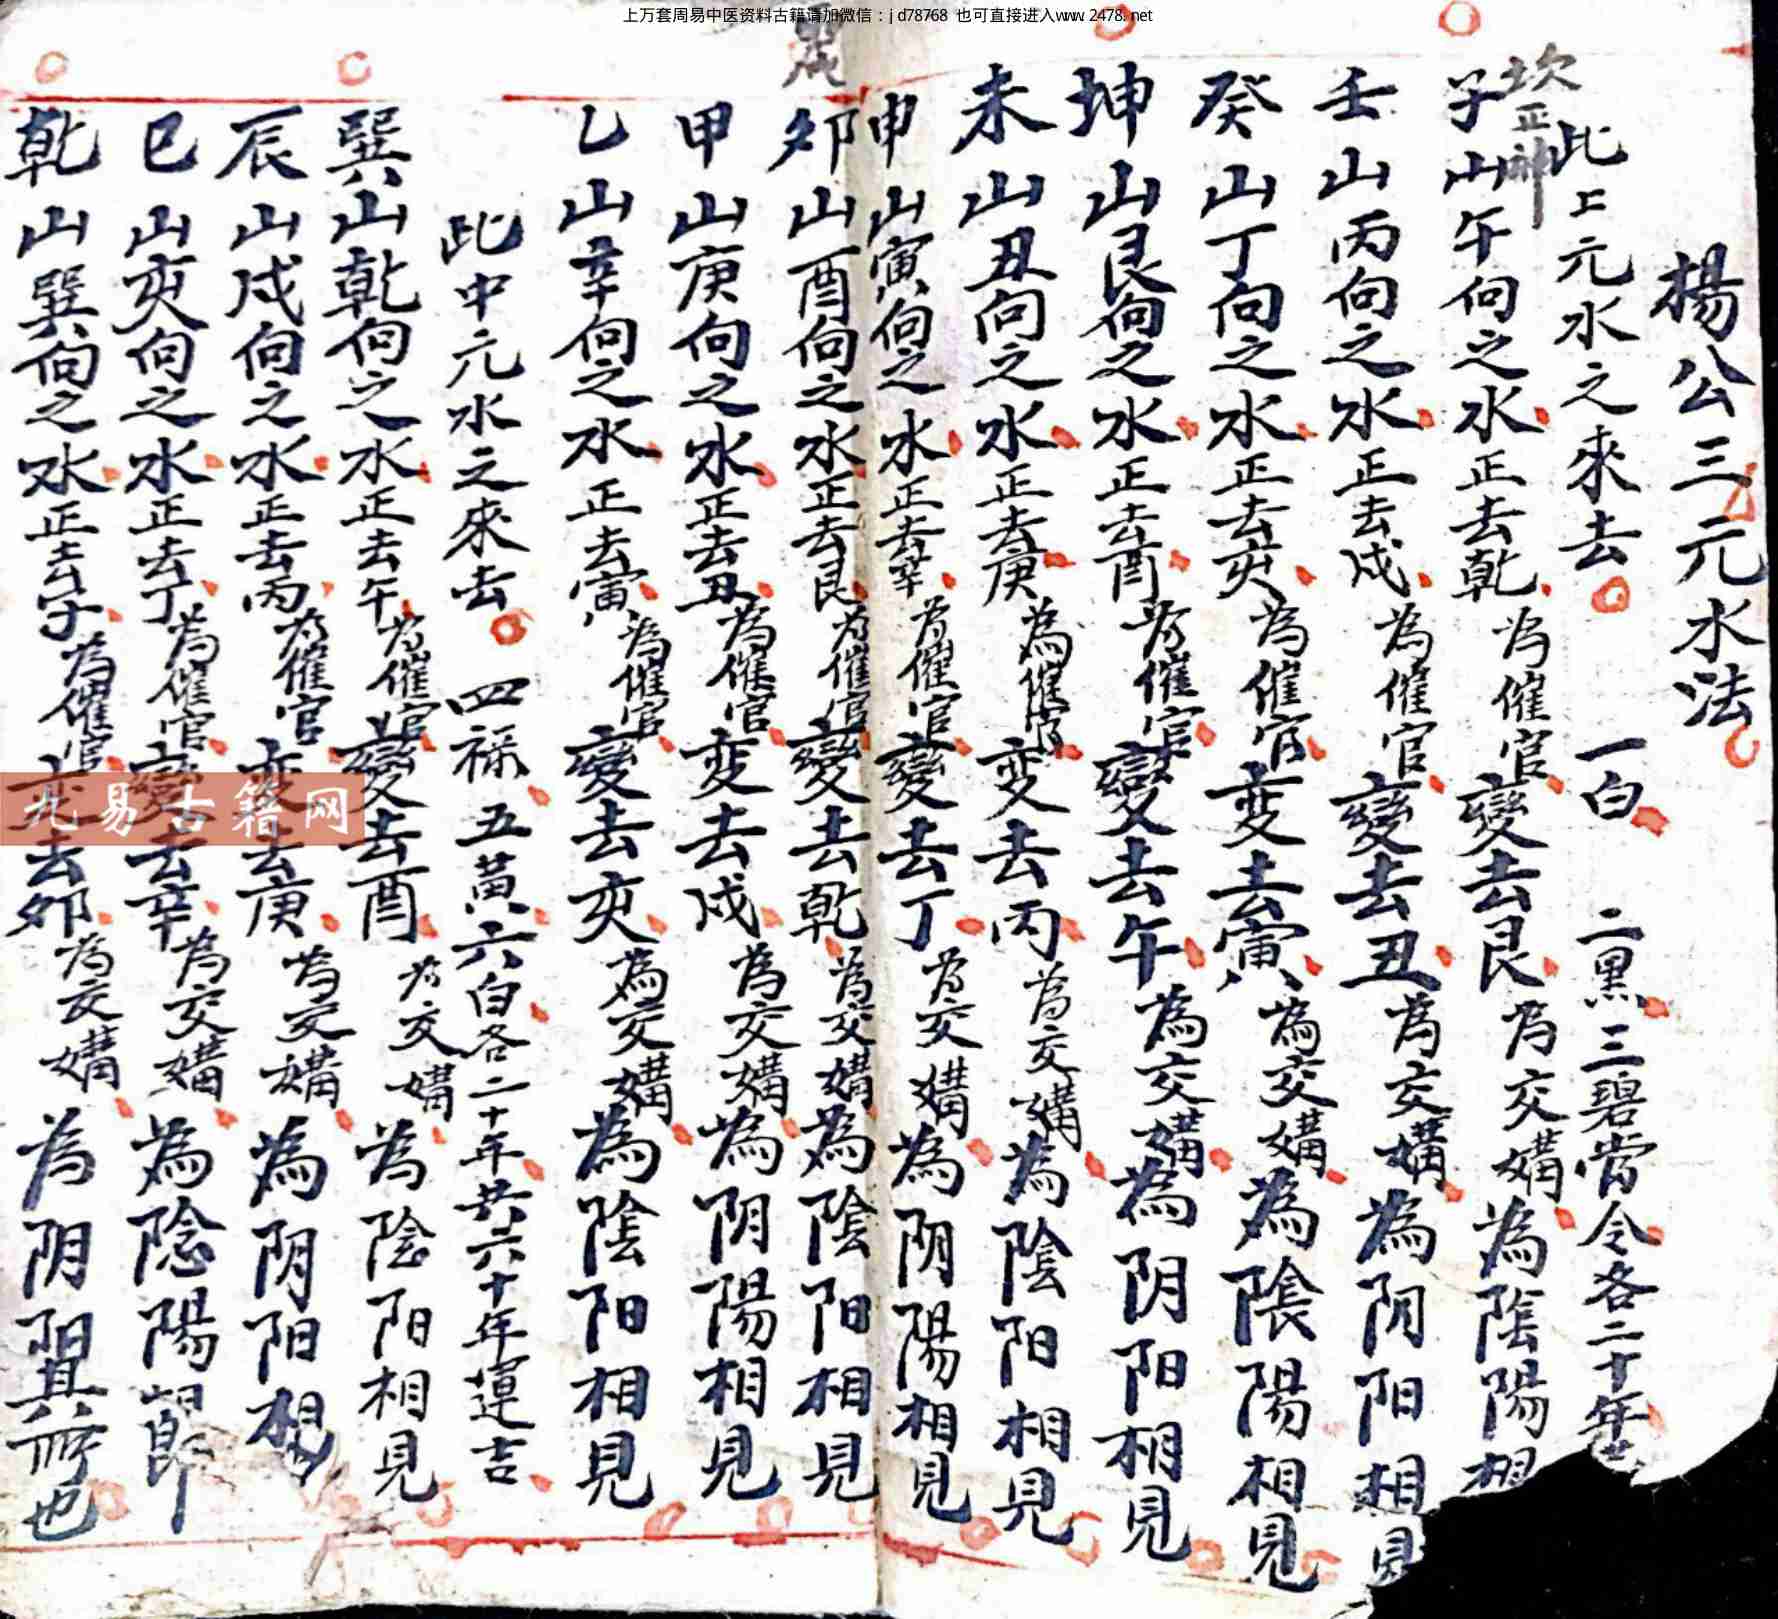 上万套周易中医资料古籍请加微信：jd78768 也可直接进入www.2478.net
楊公三元水法
此上元水之來去 一白 二黑 三碧当令各二十年
坎正神
子山午向之水正去乾為催官變去艮為交媾為陰陽相
壬山丙向之水正去戌為催官變去丑為交媾為阴阳相見
癸山丁向之水正去亥為催官变去寅為交媾為陰陽相見
坤山艮向之水正去酉為催官變去午為交媾為阴阳相見
未山丑向之水正去庚為催官变去丙為交媾為陰阳相見
申山寅向之水正去辛為催官變去丁為交媾為阴陽相見
卯山酉向之水正去艮為催官變去乾為交媾為陰阳相見
甲山庚向之水正去丑為催官变去戌為交媾為阴陽相見
乙山辛向之水正去寅為催官變去亥為交媾為陰阳相見
此中元水之來去 四祿 五黃 六白各二十年共六十年運吉
巽山乾向之水正去午為催官變去酉為交媾為陰阳相見
辰山戌向之水正去丙為催官变去庚為交媾為阴阳相
巳山亥向之水正去丁為催官變去辛為交媾為陰陽
乾山巽向之水正去子為催官变去卯為交媾為阴阳 也
九易古籍网